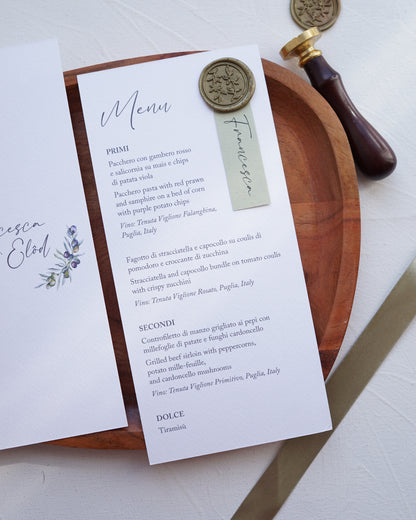 Menu
Francesca
PRIMI
Pacchero con gambero rosso
e salicornia su mais e chips
di patata viola
Pacchero pasta with red prawn
and samphire on a bed of corn
with purple potato chips
Vino: Tenuta Viglione Falanghina,
Puglia, Italy
Fagotto di stracciatella e capocollo su coulis di
pomodoro e croccante di zucchina
Stracciatella and capocollo bundle on tomato coulis
with crispy zucchini
Vino: Tenuta Viglione Rosato, Puglia, Italy
SECONDI
Controfiletto di manzo grigliato ai pepi con
millefoglie di patate e funghi cardoncello
Grilled beef sirloin with peppercorns,
potato mille-feuille,
and cardoncello mushrooms
Vino: Tenuta Viglione Primitivo, Puglia, Italy
DOLCE
Tiramisù
cesca
Elöd